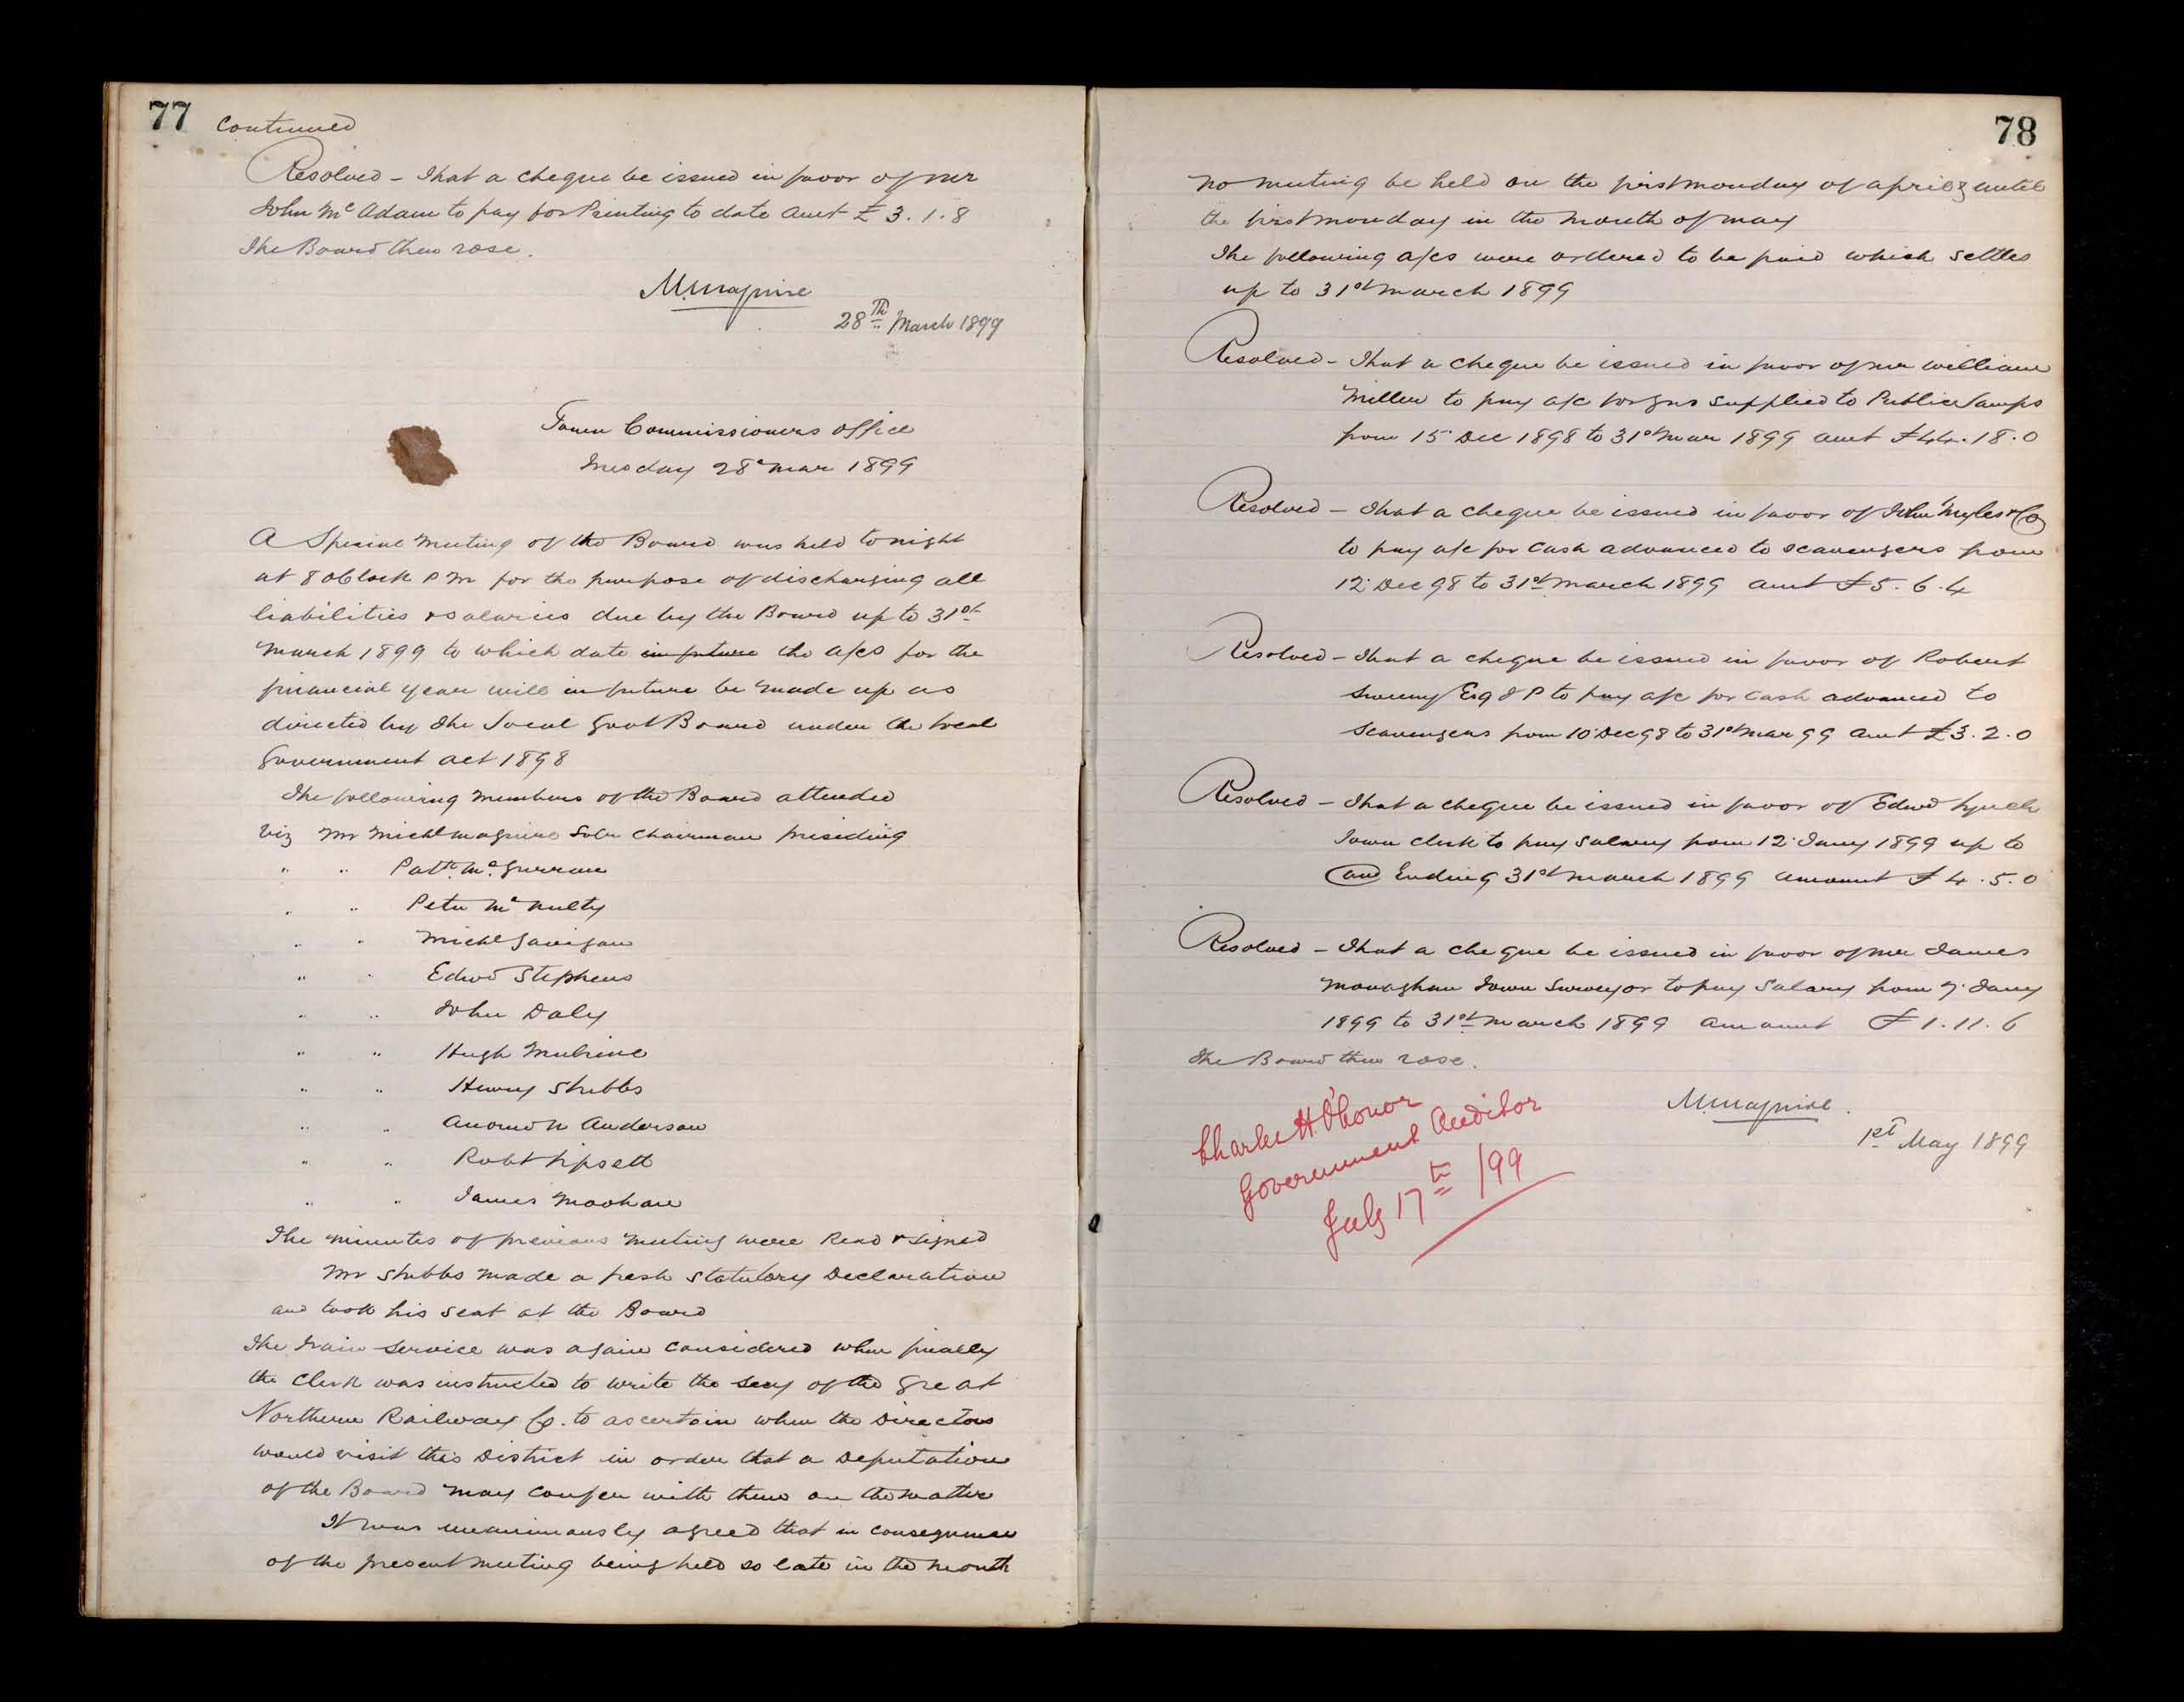 77 Continued
Resolved - That a cheque be issued in favor of Mr
John McAdam to pay for Printing to date Amt £3.1.8
The Board then rose.
M. Maguire
28th March 1899
Town Commissioners Office
Tuesday 28 Mar 1899
A Special Meeting of the Board was held to night
at 8 oClock P M for the purpose of discharging all
liabilities & salaries due by the Board up to 31st
March 1899 to which date in future the a/cs for the
financial year will in future be made up as
directed by the Local Govt Board under the Local
Government Act 1898
The following Members of the Board attended
Viz Mr Michl Maguire Solr Chairman presiding
" " Patk McGurran
" " Peter McNulty
" " Michl Gavigan
" " Edwd Stephens
" " John Daly
" " Hugh Mulrine
" " Henry Stubbs
" " Andrew N Anderson
" " Robt Lipsett
" " James Moohan
The minutes of previous meeting were Read & signed
Mr Stubbs made a fresh Statutory Declaration
and took his seat at the Board
The Train Service was again Considered when finally
the Clerk was instructed to write the Secy of the Great
Northern Railway Co. to ascertain when the Directors
would visit this District in order that a Deputation
of the Board may Confer with them on the matter
It was unanimously agreed that in Consequence
of the present Meeting being held so late in the Month
78
No meeting be held on the first Monday of April & until
the first Monday in the Month of May
The following a/cs were ordered to be paid which settles
up to 31st March 1899
Resolved - That a Cheque be issued in favor of Mr William
Miller to pay a/c for gas supplied to Public Lamps
from 15 Dec 1898 to 31st Mar 1899 Amt £44.18.0
Resolved - That a Cheque be issued in favor of John Myles & Co
to pay a/c for Cash advanced to Scavengers from
12 Dec 98 to 31st March 1899 Amt £5.6.4
Resolved - That a Cheque be issued in favor of Robert
Sweeny Esq J P to pay a/c for Cash advanced to
Scavengers from 10 Dec 98 to 31st Mar 99 Amt £3.2.0
Resolved - That a Cheque be issued in favor of Edwd Lynch
Town Clerk to pay Salary from 12 Jany 1899 up to
and Ending 31st March 1899 Amount £4.5.0
Resolved - That a Cheque be issued in favor of Mr James
Monaghan Town Surveyor to pay Salary from 7 Jany
1899 to 31st March 1899 Amount £1.11.6
The Board then rose.
M. Maguire
1st May 1899
Charles H O'Conor
Government Auditor
July 17th /99